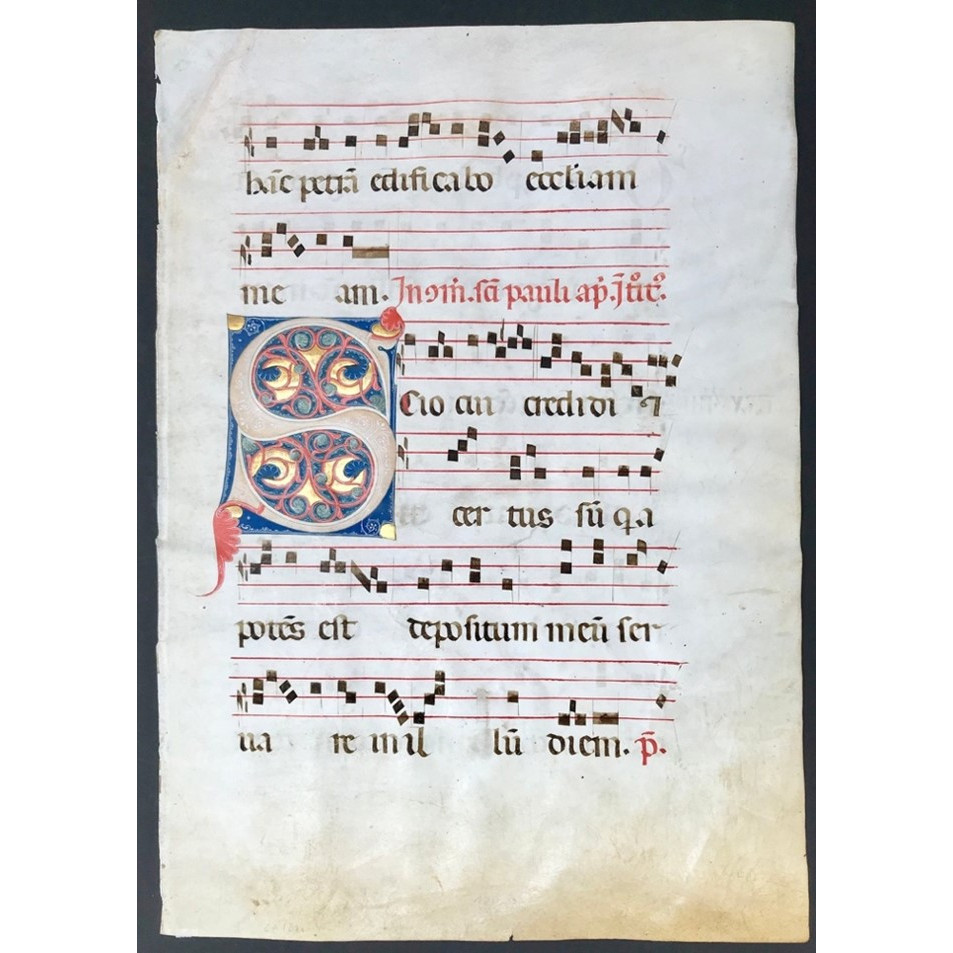 hāc petrā edificabo eccliam
me am. In ɔm̄. sc̄i pauli ap̄. Ītit̊.
Scio cui credidi ⁊
cer tus sū q̣a
potēs est depositum meū ser
ua re in il lū diem. p̄.